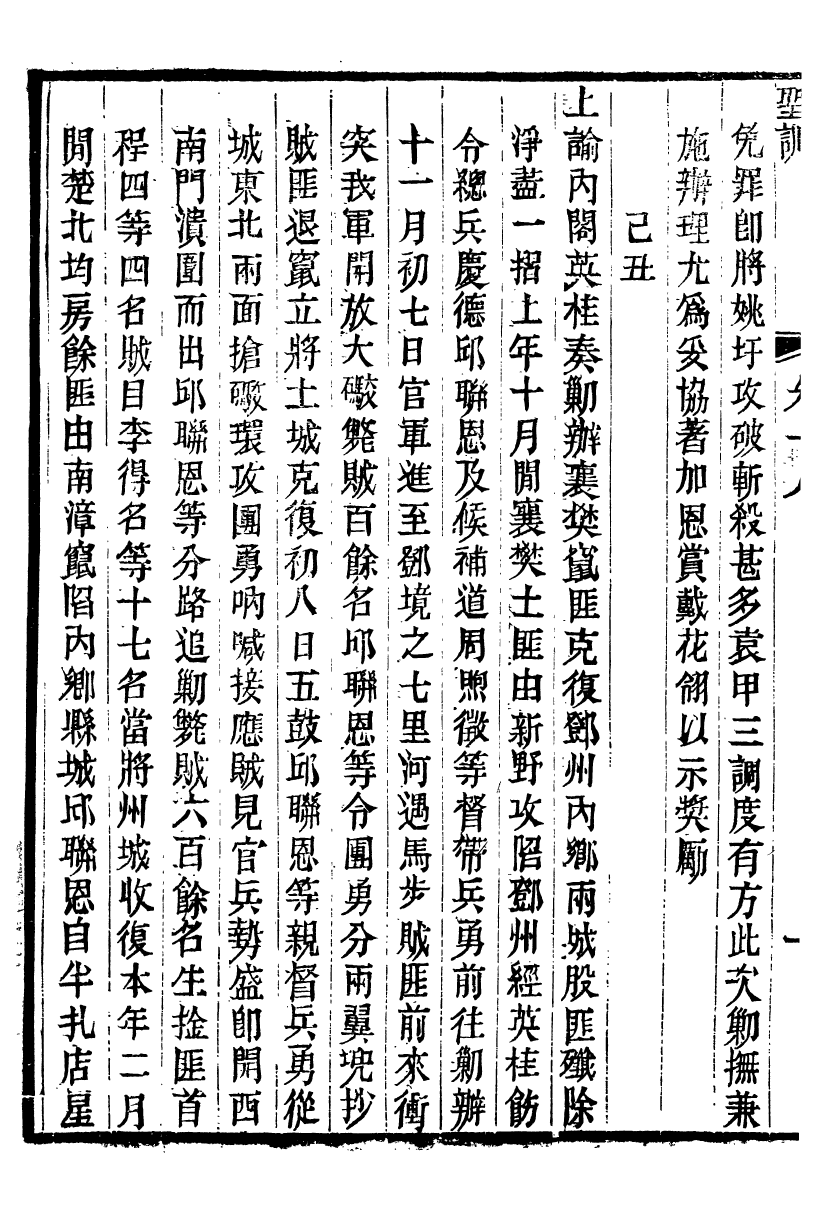 聖訓
免罪卽將姚圩攻破斬殺甚多袁甲三調度有方此次勦撫兼
施辦理尤爲妥協著加恩賞戴花翎以示獎勵
己丑
上諭內閣英桂奏勦辦襄樊竄匪克復鄧州內鄉兩城股匪殲除
淨盡一摺上年十月閒襄樊土匪由新野攻陷鄧州經英桂飭
令總兵慶德邱聯恩及候補道周煦徵等督帶兵勇前往勦辦
十一月初七日官軍進至鄧境之七里河遇馬步賊匪前來衝
突我軍開放大礮斃賊百餘名邱聯恩等令團勇分兩翼兜抄
賊匪退竄立將土城克復初八日五鼓邱聯恩等親督兵勇從
城東北兩面搶礮環攻團勇吶喊接應賊見官兵勢盛卽開西
南門潰圍而出邱聯恩等分路追勦斃賊六百餘名生擒匪首
程四等四名賊目李得名等十七名當將州城收復本年二月
閒楚北均房餘匪由南漳竄陷內鄉縣城邱聯恩自半扎店星